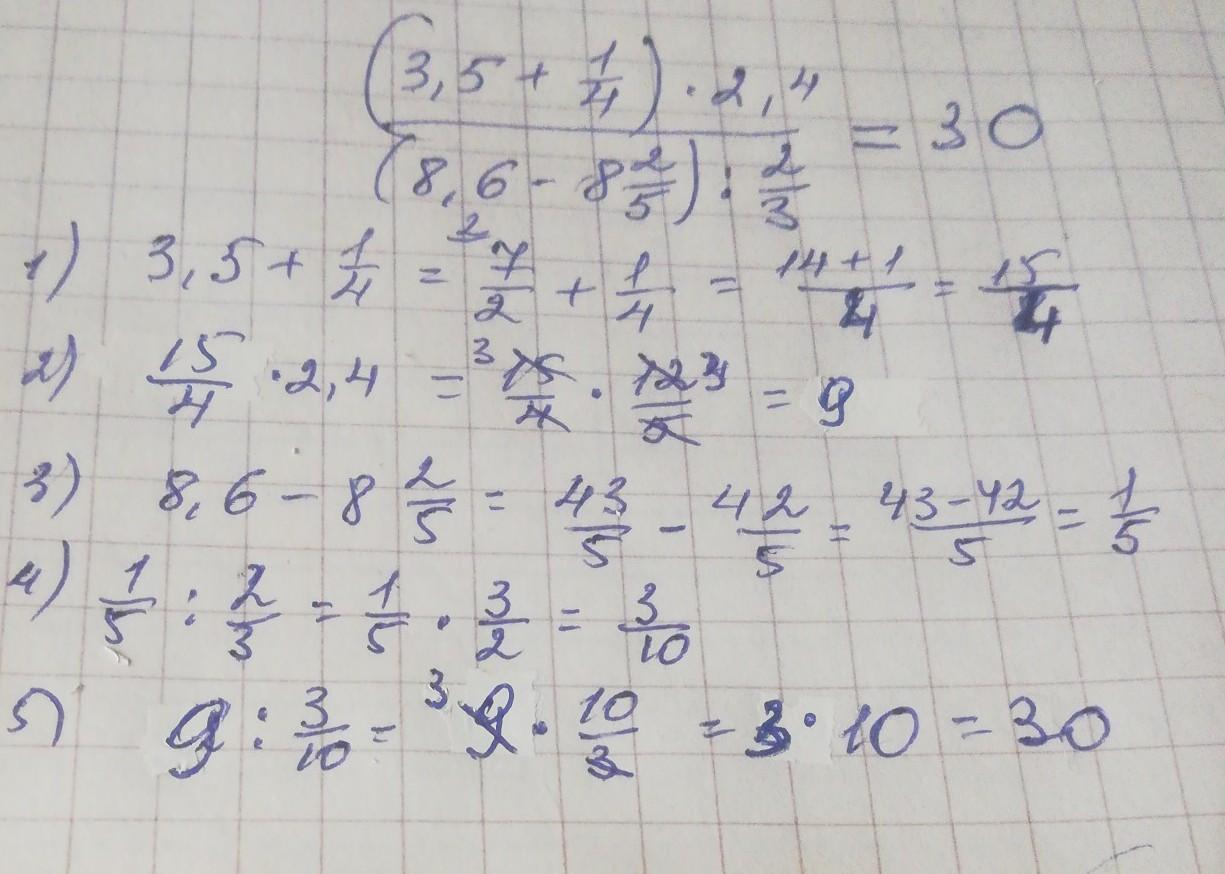 (3,5 + 1/4) · 2,4 / (8,6 - 8 2/5) : 2/3 = 30
1) 3,5 + 1/4 = 2 7/2 + 1/4 = 14+1/4 = 15/4
2) 15/4 · 2,4 = 3 15/4 · 12/5 3 = 9
3) 8,6 - 8 2/5 = 43/5 - 42/5 = 43-42/5 = 1/5
4) 1/5 : 2/3 = 1/5 · 3/2 = 3/10
5) 9 : 3/10 = 3 9 · 10/3 = 3 · 10 = 30